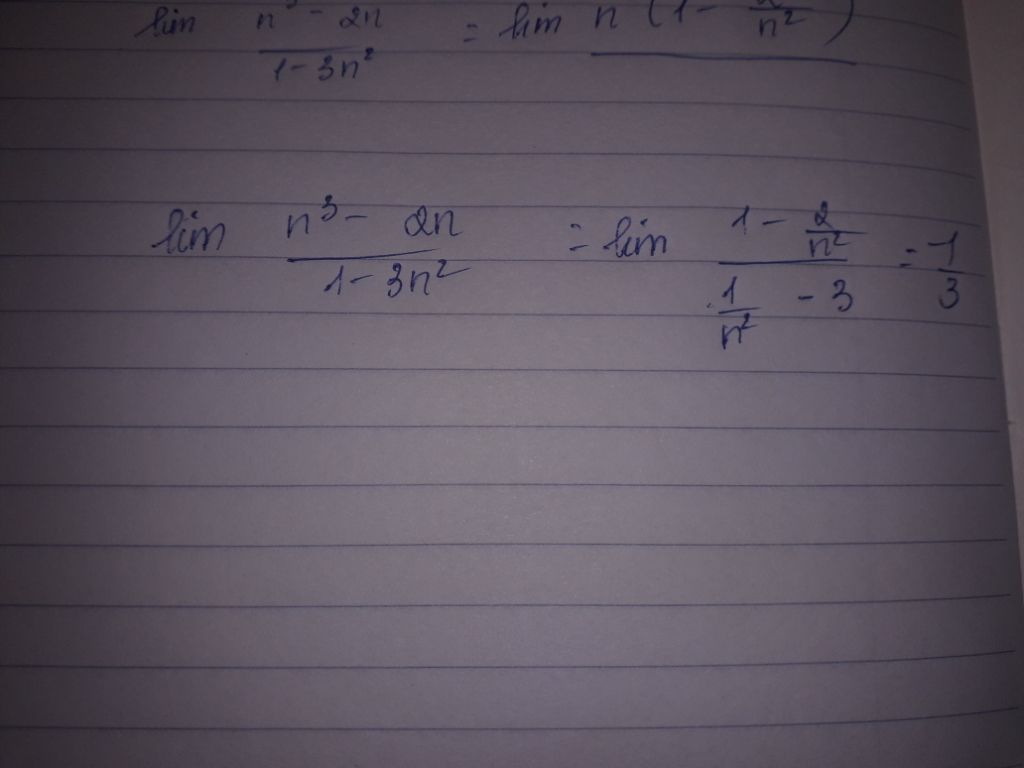 lim n³ - 2n / 1 - 3n² = lim n (1 - 2/n²)
lim n³ - 2n / 1 - 3n² = lim 1 - 2/n² / 1/n² - 3 = -1/3